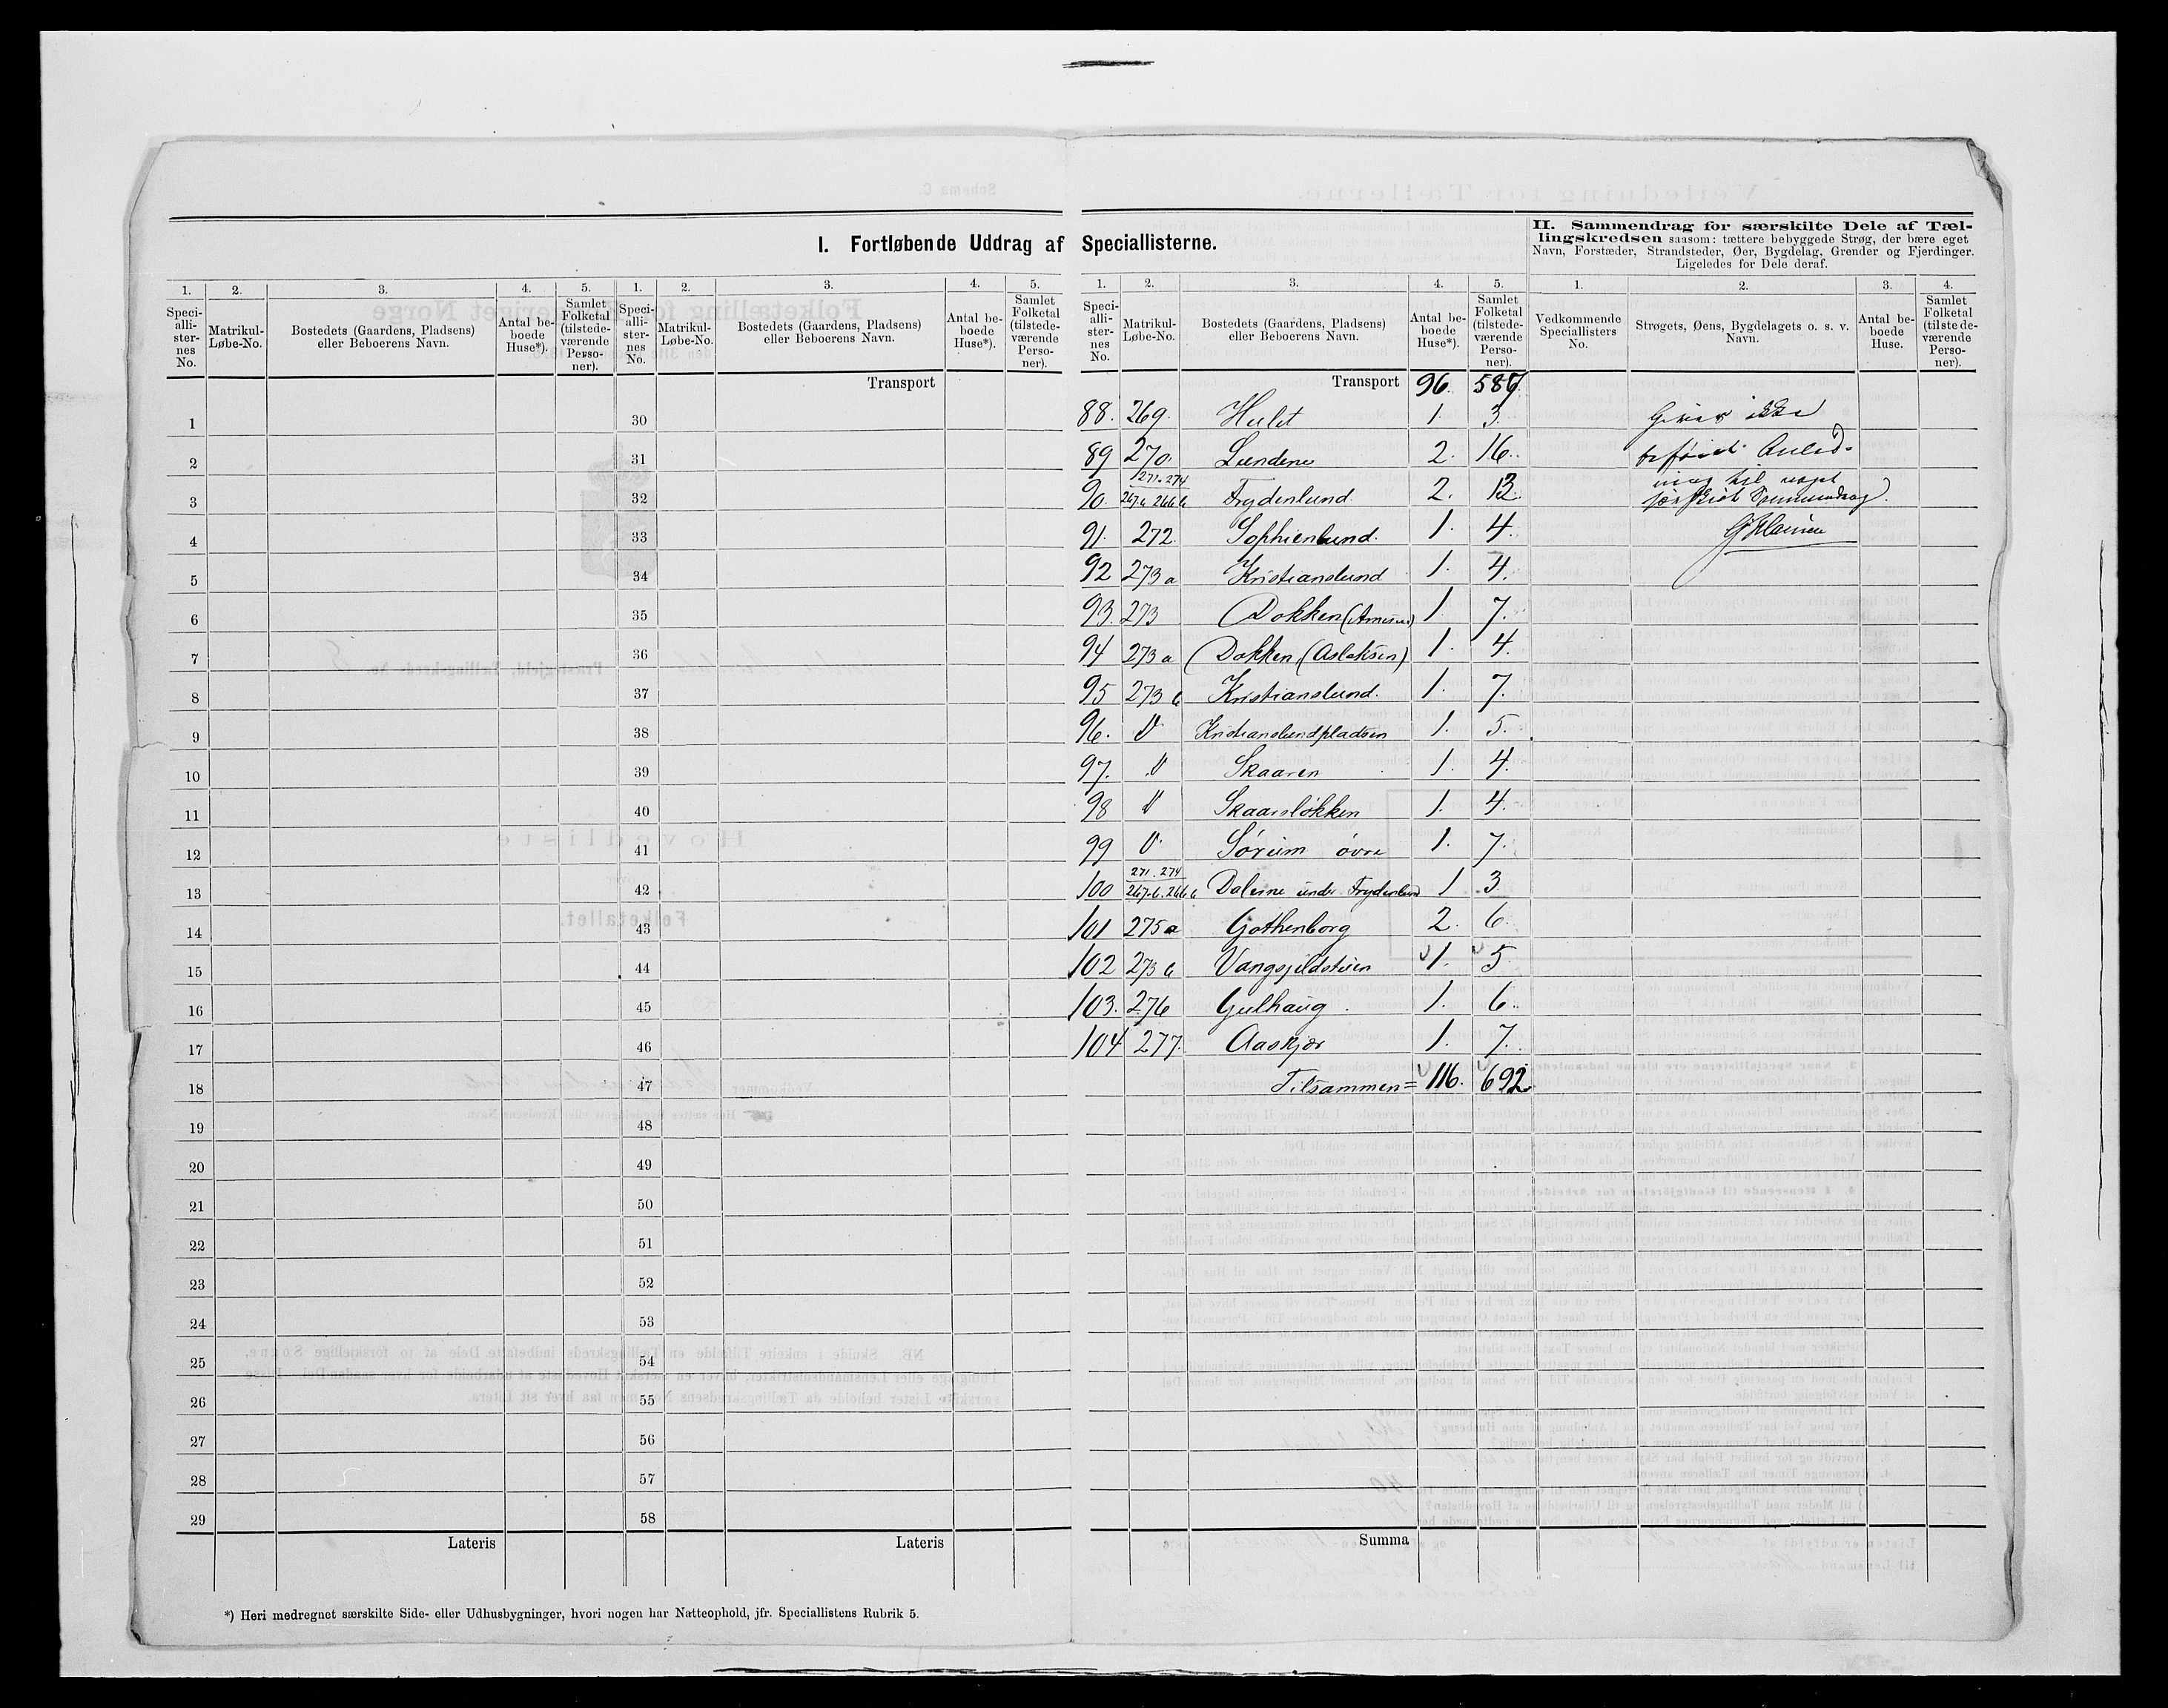 I. Fortløbende Uddrag af Speciallisterne.
II. Sammendrag for særskilte Dele af Tæl-
lingskredsen saasom: tættere bebyggede Strøg, der bære eget
Navn, Forstæder, Strandsteder, Øer, Bygdelag, Grender og Fjerdinger.
Ligeledes for Dele deraf.
1. 2. 3. 4. 5. 1. 2. 3. 4. 5. 1. 2. 3. 4. 5. 1. 2. 3. 4.
Speci-alli-ster-nes No. Matrikul-Løbe-No. Bostedets (Gaardens, Pladsens) eller Beboerens Navn. Antal be-boede Huse*). Samlet Folketal (tilstede-værende Perso-ner).
Speci-alli-ster-nes No. Matrikul-Løbe-No. Bostedets (Gaardens, Pladsens) eller Beboerens Navn. Antal be-boede Huse*). Samlet Folketal (tilstede-værende Perso-ner).
Speci-alli-ster-nes No. Matrikul-Løbe-No. Bostedets (Gaardens, Pladsens) eller Beboerens Navn. Antal be-boede Huse*). Samlet Folketal (tilstede-værende Perso-ner).
Vedkommende Speciallisters No. Strøgets, Øens, Bygdelagets o. s. v. Navn. Antal be-boede Huse. Samlet Folketal (tilstede-værende Perso-ner).
Transport Transport 96.
1 30 88. 269. Hulet 1 3. ikke
2 31 89 270. Lundene 2. 16.
271. 274
3 32 90. 267b 266b Frydenlund 2. 13. til
4 33 91. 272. Sophienlund. 1. 4.
5 34 92 273a Kristianslund 1. 4.
6 35 93. 273 Dokken (Arnesen) 1 7.
7 36 94 273a Dokken (Aslaksen) 1. 4.
8 37 95 273b Kristianslund. 1. 7.
9 38 96. " Kristianslundpladsen 1. 5.
10 39 97. " Skaaren 1. 4.
11 40 98 " Skaarsløkken 1. 4.
12 41 99 " Sørum øvre 1. 7.
271. 274
13 42 100 267.b. 266b Dalene under Frydenlund 1 3
14 43 101 275a Gothenborg 2. 6.
15 44 102 273b Vangsjildstuen 1. 5
16 45 103. 276 Gulhaug 1. 6.
17 46 104 277. Aaskjær 1. 7.
18 47 Tilsammen = 116. 692
19 48
20 49
21 50
22 51
23 52
24 53
25 54
26 55
27 56
28 57
29 58
Lateris Lateris Summa
*) Heri medregnet særskilte Side- eller Udhusbygninger, hvori nogen har Natteophold, jfr. Speciallistens Rubrik 5.